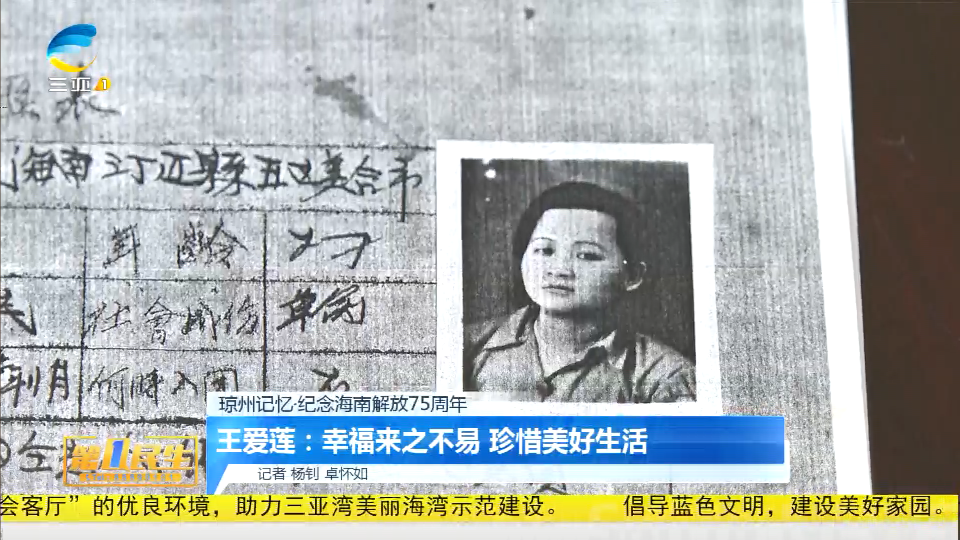 三亚1
海南 澄迈县五区美合市
年龄
社会成份
何时入团
琼州记忆·纪念海南解放75周年
王爱莲：幸福来之不易 珍惜美好生活
第1民生
记者 杨钊 卓怀如
会客厅”的优良环境，助力三亚湾美丽海湾示范建设。 倡导蓝色文明，建设美好家园。